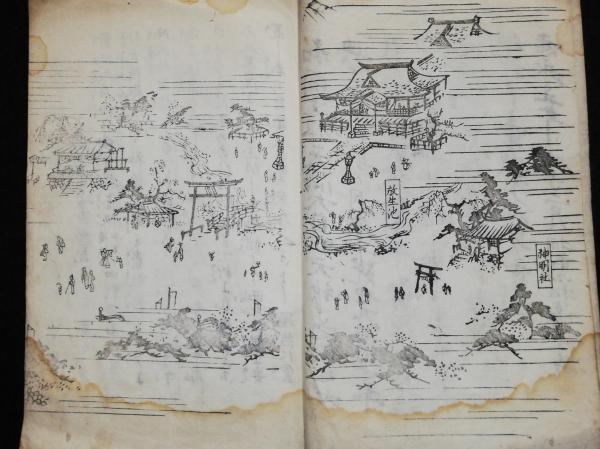 神明社
放生池